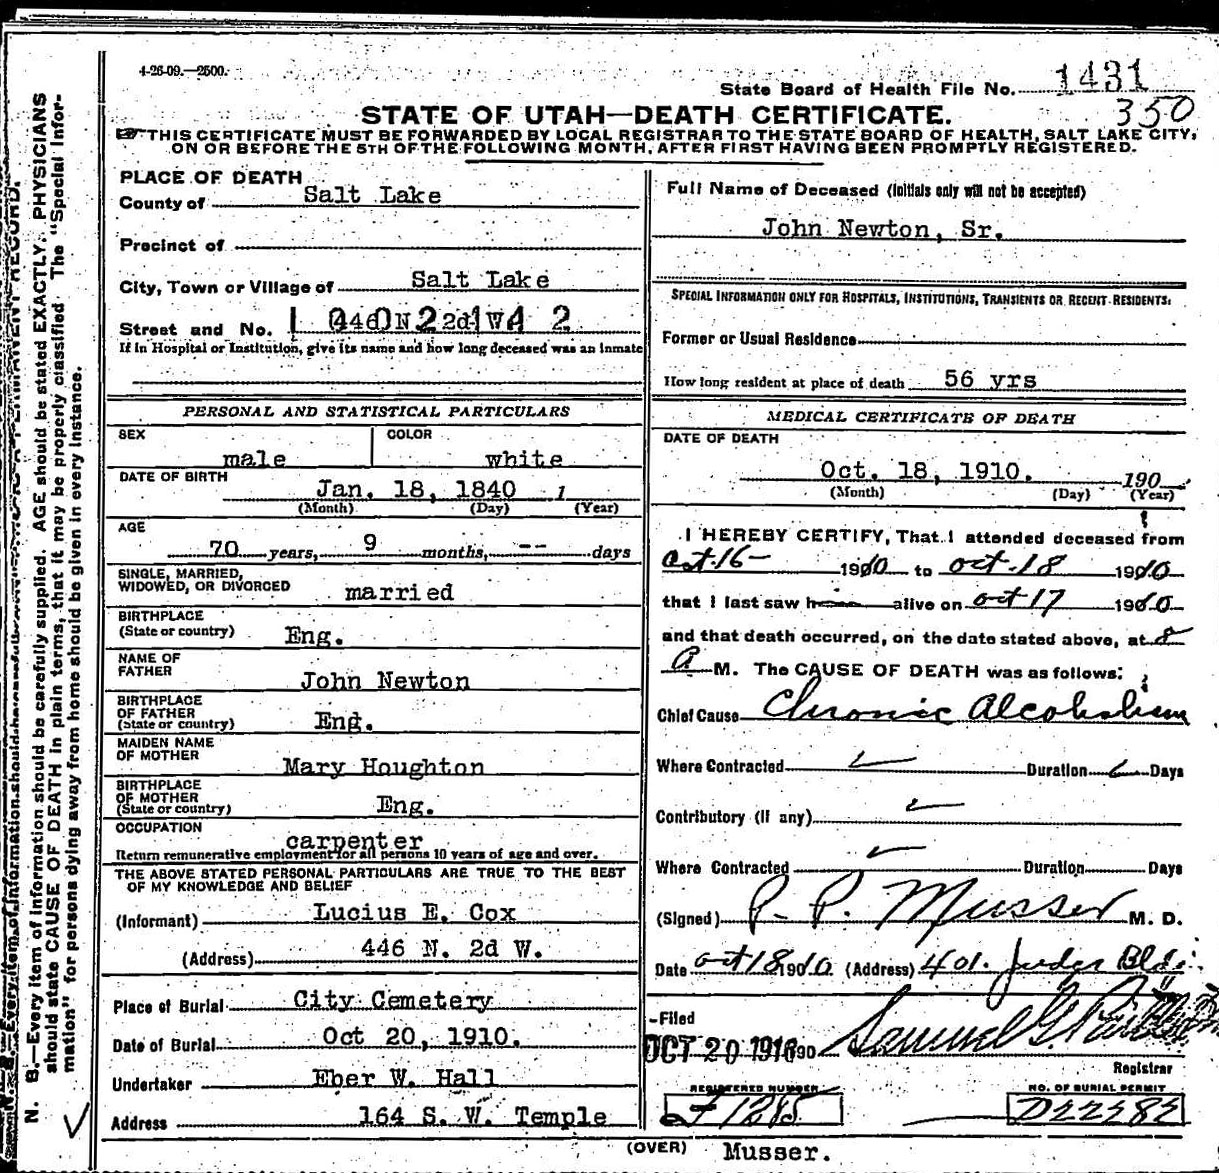 4-26-09.—2500.
State Board of Health File No. 1431
350
STATE OF UTAH—DEATH CERTIFICATE.
THIS CERTIFICATE MUST BE FORWARDED BY LOCAL REGISTRAR TO THE STATE BOARD OF HEALTH, SALT LAKE CITY,
ON OR BEFORE THE 5TH OF THE FOLLOWING MONTH, AFTER FIRST HAVING BEEN PROMPTLY REGISTERED.
N. B.—Every item of information should be carefully supplied. AGE should be stated EXACTLY. PHYSICIANS
should state CAUSE OF DEATH in plain terms, that it may be properly classified. The "Special Infor-
mation" for persons dying away from home should be given in every instance.
PLACE OF DEATH
County of Salt Lake
Precinct of
City, Town or Village of Salt Lake
Street and No.
If in Hospital or Institution, give its name and how long deceased was an inmate
PERSONAL AND STATISTICAL PARTICULARS
SEX male COLOR white
DATE OF BIRTH Jan. 18, 1840 1
(Month) (Day) (Year)
AGE 70 years, 9 months, -- days
SINGLE, MARRIED,
WIDOWED, OR DIVORCED married
BIRTHPLACE
(State or country) Eng.
NAME OF
FATHER John Newton
BIRTHPLACE
OF FATHER
(State or country) Eng.
MAIDEN NAME
OF MOTHER Mary Houghton
BIRTHPLACE
OF MOTHER
(State or country) Eng.
OCCUPATION carpenter
Return remunerative employment for all persons 10 years of age and over.
THE ABOVE STATED PERSONAL PARTICULARS ARE TRUE TO THE BEST
OF MY KNOWLEDGE AND BELIEF
(Informant) Lucius E. Cox
(Address) 446 N. 2d W.
Place of Burial City Cemetery
Date of Burial Oct 20, 1910.
Undertaker Eber W. Hall
Address 164 S. W. Temple
Full Name of Deceased (initials only will not be accepted)
John Newton, Sr.
SPECIAL INFORMATION ONLY FOR HOSPITALS, INSTITUTIONS, TRANSIENTS OR RECENT RESIDENTS:
Former or Usual Residence
How long resident at place of death 56 yrs
MEDICAL CERTIFICATE OF DEATH
DATE OF DEATH
Oct. 18, 1910. 190
(Month) (Day) (Year)
I HEREBY CERTIFY, That I attended deceased from
Oct. 16- 1910 to Oct. 18 1910
that I last saw him alive on Oct 17 1910
and that death occurred, on the date stated above, at 8
A M. The CAUSE OF DEATH was as follows:
Chief Cause Chronic Alcoholism
Where Contracted Duration Days
Contributory (if any)
Where Contracted Duration Days
(Signed) P. P. Musser M. D.
Date Oct 18 1910 (Address) 401. Judge Bldg.
Filed
OCT 20 1910 190 Samuel G.
Registrar
REGISTERED NUMBER NO. OF BURIAL PERMIT
F1285 D22282
(OVER) Musser.